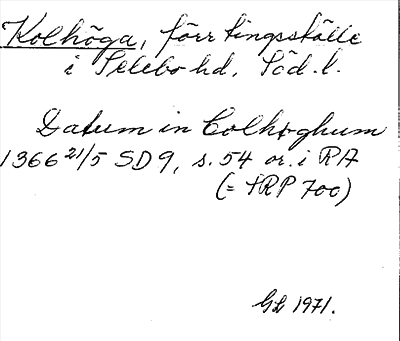 Kolhöga, förr tingsställe
i Selebo hd, Söd. l.
Datum in Colhøghum
1366 21/5 SD 9, s. 54 or. i RA
(= SRP 700)
GL 1971.